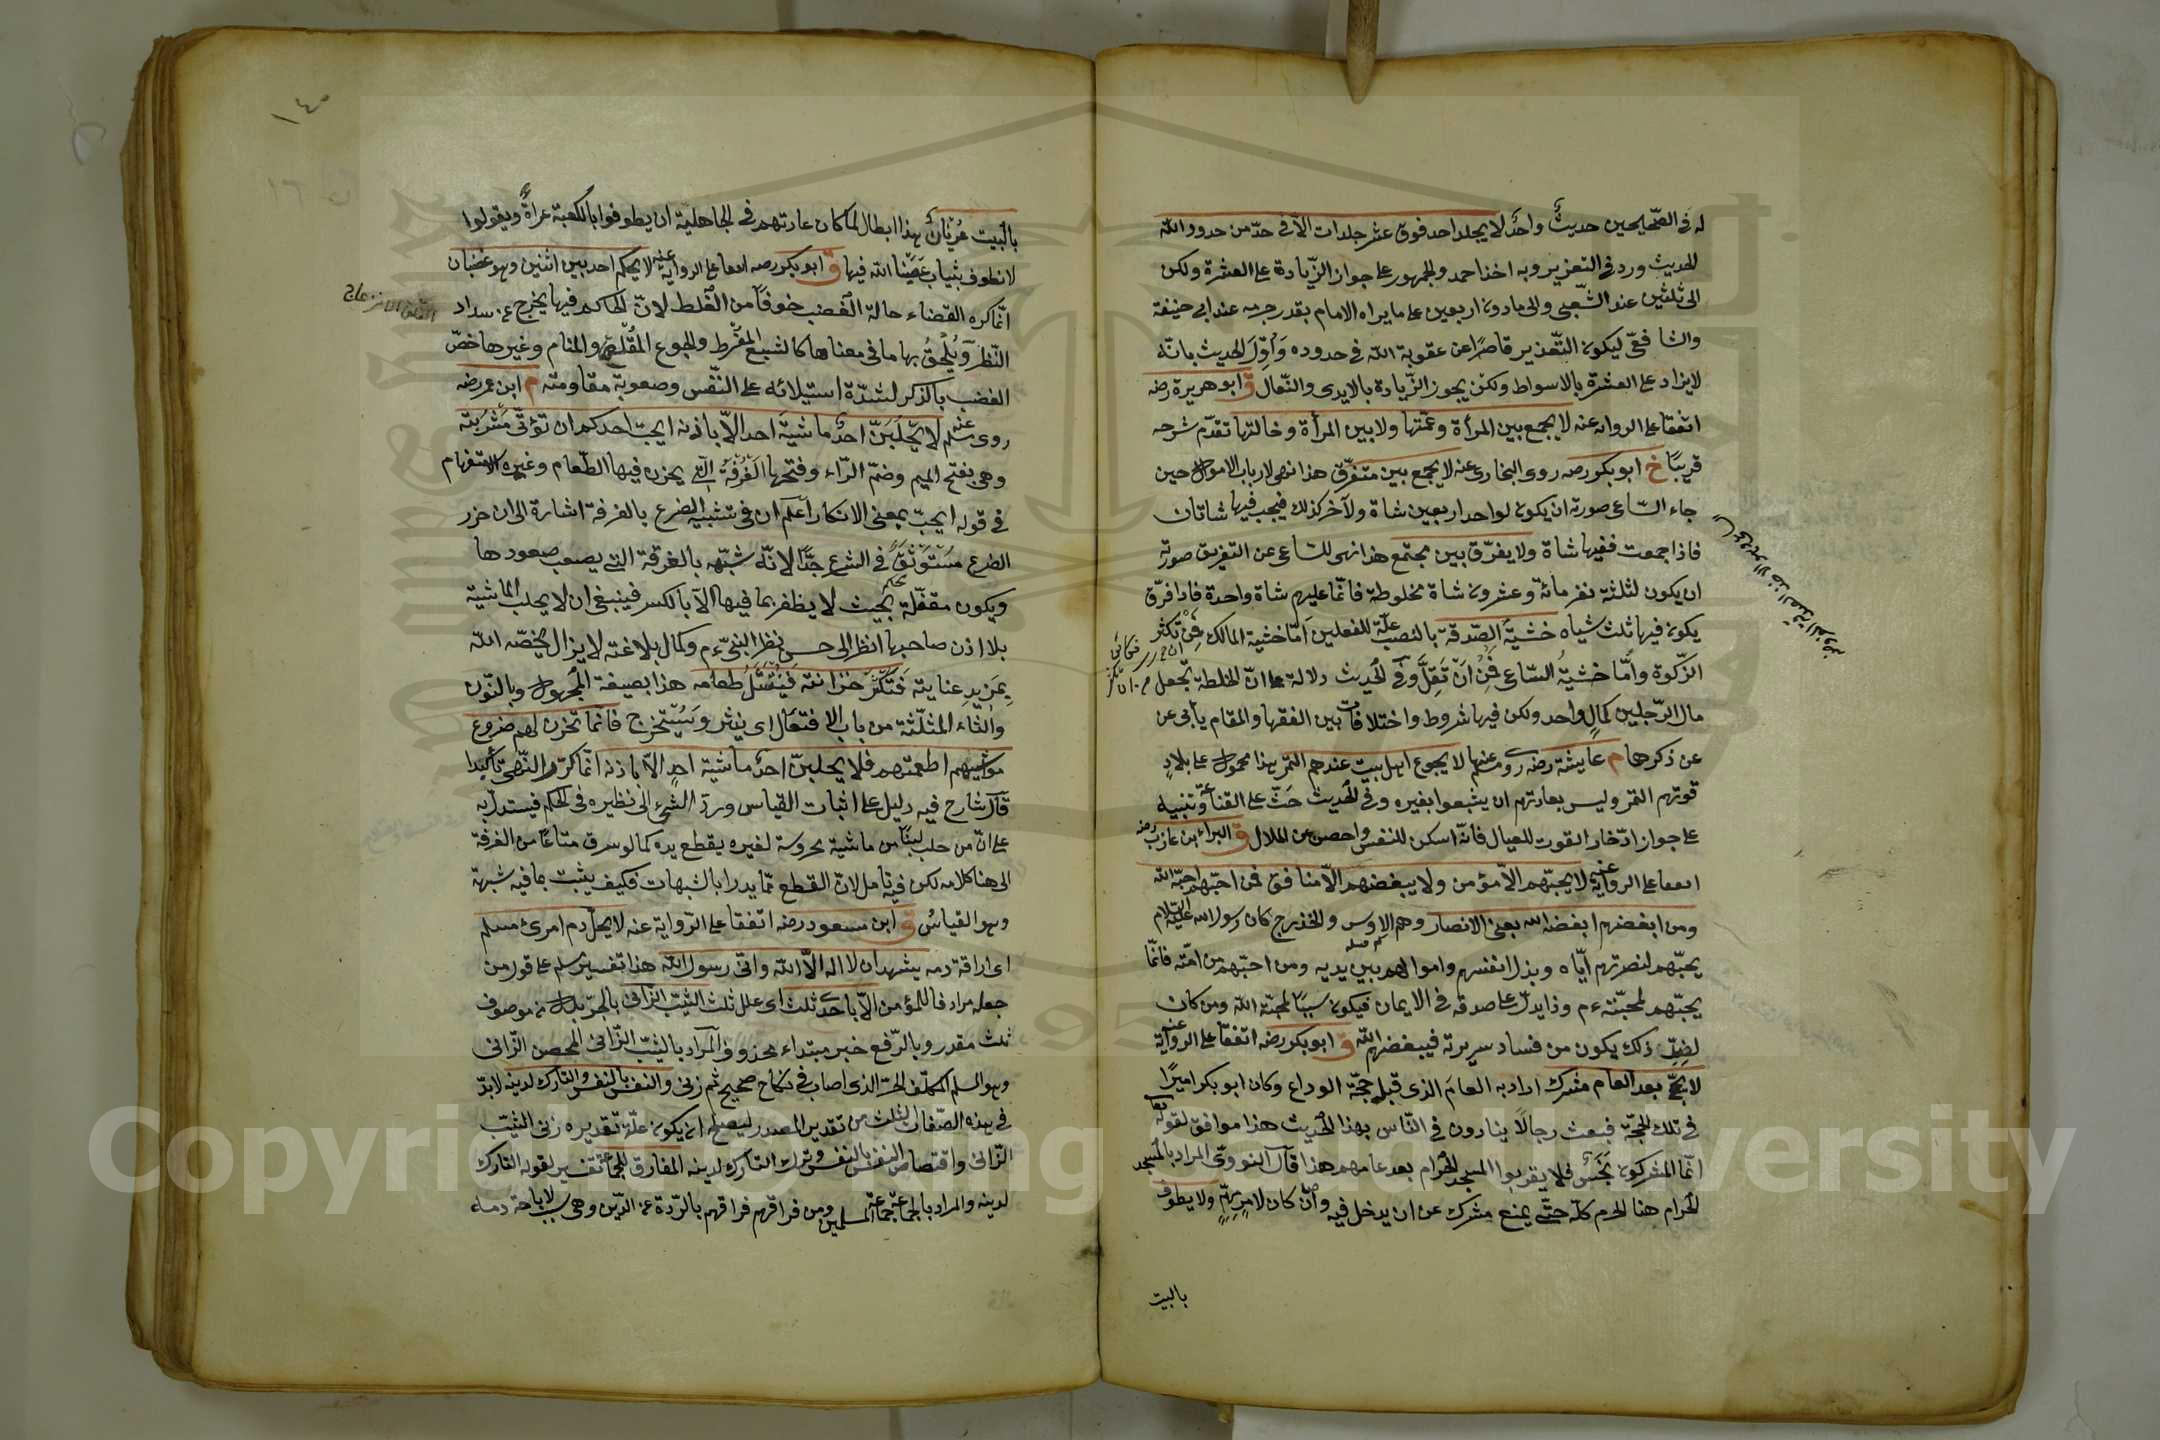 له في الصحيحين حديث واحد لا يجلد احد فوق عشر جلدات الا في حد من حدود الله
الحديث ورد في التعزير وبه اخذ احمد والجمهور على جواز الزيادة على العشرة ولكن
الى ثلثين عند الشعبي والى ما دون اربعين على ما يراه الامام بقدر جرمه عند ابي حنيفة
والشافعي ليكون التعذير قاصرا عن عقوبة الله في حدوده واول الحديث بانه
لا يزاد على العشرة بالاسواط ولكن يجوز الزيادة بالايدي والنعال ق ابو هريرة رضه
اتفقا على الرواية عنه لا يجمع بين المرأة وعمتها ولا بين المرأة وخالتها تقدم شرحه
قريبا خ ابو بكر رضه روى البخاري عنه لا يجمع بين متفرق هذا نهى لارباب الاموال حين
جاء الساعي صورته ان يكون لواحد اربعين شاة ولآخر كذلك فيجب فيها شاتان
فاذا جمعت ففيها شاة ولا يفرق بين مجتمع هذا نهى للساعي عن التفريق صورته
ان يكون لثلثة نفر مائة وعشرون شاة مخلوطة فانما عليهم شاة واحدة فاذا فرق
يكون فيها ثلث شياه خشية الصدقة بالنصب علة للفعلين اما خشية المالك فمن تكثر
الزكوة واما خشية الساعي فمن ان تقل وفي الحديث دلالة على ان الخلطة تجعل
مال الرجلين كمال واحد ولكن فيها شروط واختلافات بين الفقها والمقام يأبى عن
عن ذكرها م عايشة رضه روى مسلم عنها لا يجوع اهل بيت عندهم التمر هذا محمول على بلاد
قوتهم التمر وليس بعادتهم ان يشبعوا بغيره وفي الحديث حث على القناعة وتنبيه
على جواز ادخار القوت للعيال فانه اسكن للنفس واحصن عن الملال ق البراء ابن عازب رضه
اتفقا على الرواية عنه لا يحبهم الا مؤمن ولا يبغضهم الا منافق فمن احبهم احبه الله
ومن ابغضهم ابغضه الله يعني الانصار وهم الاوس والخذرج كان رسول الله عليه السلام
يحبهم لنصرتهم اياه وبذل انفسهم واموالهم بين يديه ومن احبهم من امته فانما
يحبهم لمحبته ءم وذا يدل على صدقه في الايمان فيكون سببا لمحبة الله ومن كان
لضد ذلك يكون من فساد سريرته فيبغضهم الله ق ابو بكر رضه اتفقا على الرواية عنه
لا يحج بعد العام مشرك اراد به العام الذي قبل حجة الوداع وكان ابو بكر اميرا
في تلك الحجة فبعث رجالا ينادون في الناس بهذا الحديث هذا موافق لقوله تعا
انما المشركون نجس فلا يقربوا المسجد الحرام بعد عامهم هذا قال النووي المراد بالمسجد
الحرام هنا الحرم كله حتى يمنع مشرك عن ان يدخل فيه وان كان لامر مهم ولا يطوف
بالبيت
١٤٥
بالبيت عريان هذا ابطال لما كان عادتهم في الجاهلية ان يطوفوا بالكعبة عراة ويقولوا
لا نطوف بثياب عصينا الله فيها ق ابو بكر رضه اتفقا على الرواية عنه لا يحكم احد بين اثنين وهو غضبان
انما كره القضاء حالة الغضب خوفا من الغلط لان الحاكم فيها يخرج عن سداد
النظر ويلحق بها ما في معناها كالشبع المفرط والجوع المقلق والمنام وغيرها خص
الغضب بالذكر لشدة استيلائه على النفس وصعوبة مقاومته م ابن عمر رضه
روى مسلم عنه لا يحلبن احد ماشية احد الا باذنه ايحب احدكم ان تؤتى مشربته
وهي بفتح الميم وضم الراء وفتحها الغرفة التي يخزن فيها الطعام وغيره الاستفهام
في قوله ايحب بمعنى الانكار اعلم ان في تشبيه الضرع بالغرفة اشارة الى ان حزر
الضرع مستوثق في الشرع جدا لانه شبهه بالغرفة التي يصعب صعودها
ويكون مقفلة بحيث لا يظفر بما فيها الا بالكسر فينبغي ان لا يحلب الماشية
بلا اذن صاحبها انظر الى حسن نظر النبي ءم وكمال بلاغته لا يزال يخصه الله
بمزيد عنايته فتكسر خزانته فينتثل طعامه هذا بصيغة المجهول وبالنون
والثاء المثلثة من باب الافتعال اى ينثر ويستخرج فانما تخزن لهم ضروع
مواشيهم اطعمتهم فلا يحلبن احد ماشية احد الا باذنه انما كرر النهي تأكيدا
قال شارح فيه دليل على اثبات القياس ورد الشيء الى نظيره في الحكم فيستدل به
على ان من حلب لبنا من ماشية محروسة لغيره يقطع يده كما لو سرق متاعا من الغرفة
الى هنا كلامه لكن فيه تامل لان القطع مما يدرأ بالشبهات فكيف يثبت بما فيه شبهة
وهو القياس ق ابن مسعود رضه اتفقا على الرواية عنه لا يحل دم امرئ مسلم
اى اراقة دمه يشهد ان لا اله الا الله واني رسول الله هذا تفسير مسلم على قول من
جعله مرادفا للمؤمن الا باحدى ثلث اى علل ثلث الثيب الزاني بالجر بدل من موصوف
ثلث مقدر وبالرفع خبر مبتداء محذوف المراد بالثيب الزاني المحصن الزاني
وهو المسلم المكلف الحر الذي اصاب في نكاح صحيح ثم زنى والنفس بالنفس والتارك لدينه لا بد
في هذه الصفات الثلث من تقدير المصدر ليصلح ان يكون علة تقديره زنى الثيب
الزاني واقتصاص النفس بالنفس وترك التارك لدينه المفارق للجماعة تفسير لقوله التارك
لدينه والمراد بالجماعة جماعة المسلمين ومن فراقهم فراقهم بالردة عن الدين وهى سبب لاباحة دماء
Copyright © King Saud University